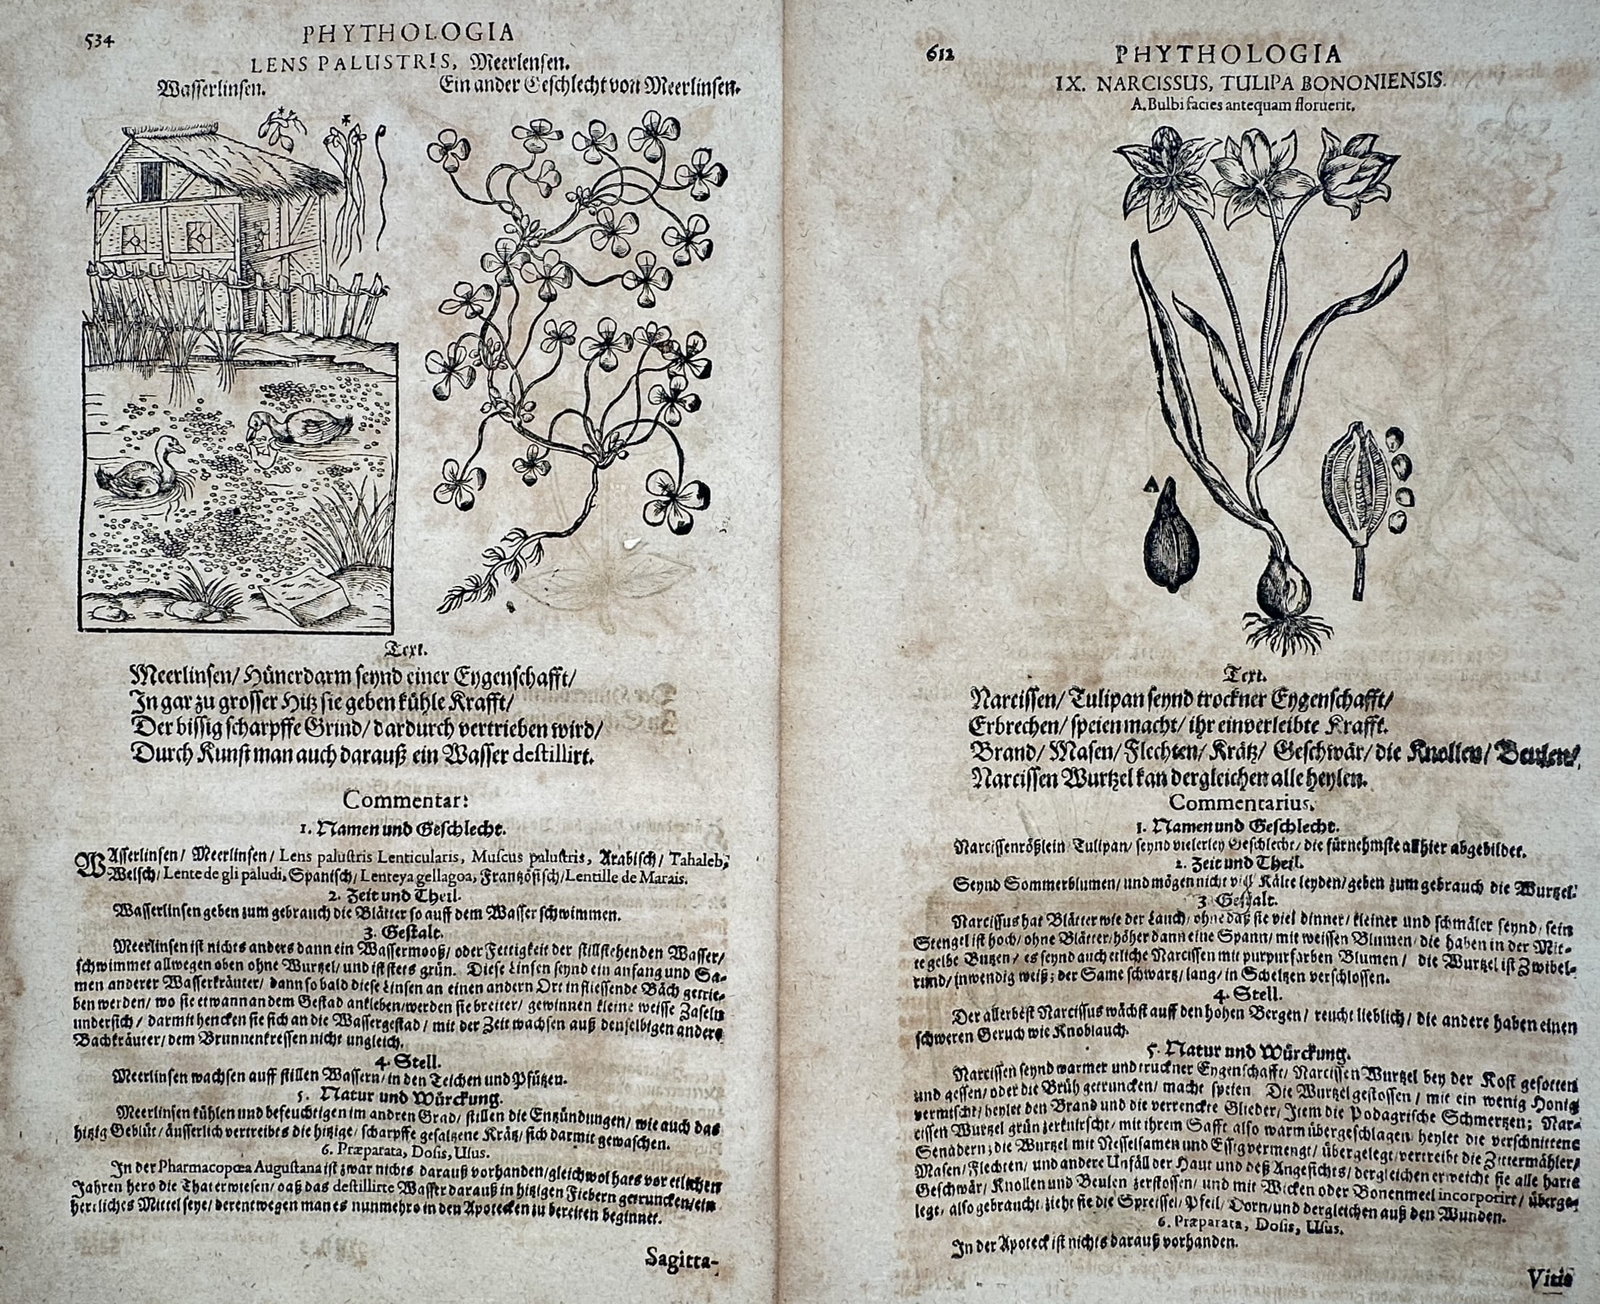 534
PHYTHOLOGIA
LENS PALUSTRIS, Meerlensen.
Wasserlinsen.
Ein ander Geschlecht von Meerlinsen.
Text.
Meerlinsen/ Hünerdarm seynd einer Eygenschafft/
In gar zu grosser Hitz sie geben kühle Krafft/
Der bissig scharpffe Grind/ dardurch vertrieben wird/
Durch Kunst man auch darauß ein Wasser destillirt.
Commentar:
1. Namen und Geschlecht.
WAsserlinsen/ Meerlinsen/ Lens palustris Lenticularis, Muscus palustris, Arabisch/ Tahaleb,
Welsch/ Lente de gli paludi, Spanisch/ Lenteya gellagoa, Französisch/ Lentille de Marais.
2. Zeit und Theil.
Wasserlinsen geben zum gebrauch die Blätter so auff dem Wasser schwimmen.
3. Gestalt.
Meerlinsen ist nichts anders dann ein Wassermooß/ oder Fettigkeit der stillstehenden Wasser/
schwimmet allwegen oben ohne Wurtzel/ und ist stets grün. Diese Linsen seynd ein anfang und Sa-
men anderer Wasserkräuter/ dann so bald diese Linsen an einen andern Ort in fliessende Bäch getrie-
ben werden/ wo sie etwann an dem Gestad ankleben/ werden sie breiter/ gewinnen kleine weisse Zaseln
undersich/ darmit hencken sie sich an die Wassergestad/ mit der Zeit wachsen auß denselbigen andere
Bachkräuter/ dem Brunnenkressen nicht ungleich.
4. Stell.
Meerlinsen wachsen auff stillen Wassern/ in den Teichen und Pfützen.
5. Natur und Würckung.
Meerlinsen kühlen und befeuchtigen im andren Grad/ stillen die Entzündungen/ wie auch das
hitzig Geblüt/ äusserlich vertreibts die hitzige/ scharpffe gesaltzene Krätz/ sich darmit gewaschen.
6. Præparata, Dosis, Usus.
In der Pharmacopœa Augustana ist zwar nichts darauß vorhanden/ gleichwol hats vor etlichen
Jahren hero die That erwiesen/ daß das destillirte Wasser darauß in hitzigen Fiebern getruncken/ ein
herrliches Mittel seye/ derentwegen man es nunmehro in den Apotecken zu bereiten beginnet.
Sagitta-
612
PHYTHOLOGIA
IX. NARCISSUS, TULIPA BONONIENSIS.
A. Bulbi facies antequam floruerit.
A
Text.
Narcissen/ Tulipan seynd trockner Eygenschafft/
Erbrechen/ speien macht/ ihr einverleibte Krafft.
Brand/ Masen/ Flechten/ Krätz/ Geschwär/ die Knollen/ Beulen/
Narcissen Wurtzel kan dergleichen alle heylen.
Commentarius.
1. Namen und Geschlecht.
Narcissenrößlein Tulipan/ seynd vielerley Geschlecht/ die fürnehmste allhier abgebildet.
2. Zeit und Theil.
Seynd Sommerblumen/ und mögen nicht viel Kälte leyden/ geben zum gebrauch die Wurtzel.
3 Gestalt.
Narcissus hat Blätter wie der Lauch/ ohne daß sie viel dinner/ kleiner und schmäler seynd/ sein
Stengel ist hoch/ ohne Blätter/ höher dann eine Spann/ mit weissen Blumen/ die haben in der Mit-
te gelbe Butzen/ es seynd auch etliche Narcissen mit purpurfarben Blumen/ die Wurtzel ist Zwibel-
rund/ inwendig weiß; der Same schwartz/ lang/ in Schelffen verschlossen.
4. Stell.
Der allerbest Narcissus wächst auff den hohen Bergen/ reucht lieblich/ die andere haben einen
schweren Geruch wie Knoblauch.
5. Natur und Würckung.
Narcissen seynd warmer und truckner Eygenschafft/ Narcissen Wurtzel bey der Kost gesotten
und gessen/ oder die Brüh getruncken/ macht speien. Die Wurtzel gestossen/ mit ein wenig Honig
vermischt/ heylet den Brand und die verrenckte Glieder/ Item die Podagrische Schmertzen; Nar-
cissen Wurtzel grün zerknirscht/ mit ihrem Safft also warm übergeschlagen/ heylet die verschnittene
Senadern; die Wurtzel mit Nesselsamen und Essig vermengt/ übergelegt/ vertreibt die Zittermähler/
Masen/ Flechten/ und andere Unfäll der Haut und deß Angesichts/ dergleichen erweicht sie alle harte
Geschwär/ Knollen und Beulen zerstossen/ und mit Wicken oder Bonenmeel incorporirt/ überge-
legt/ also gebraucht/ zieht sie die Spreissel/ Pfeil/ Dorn/ und dergleichen auß den Wunden.
6. Præparata, Dosis, Usus.
In der Apoteck ist nichts darauß vorhanden.
Vitis